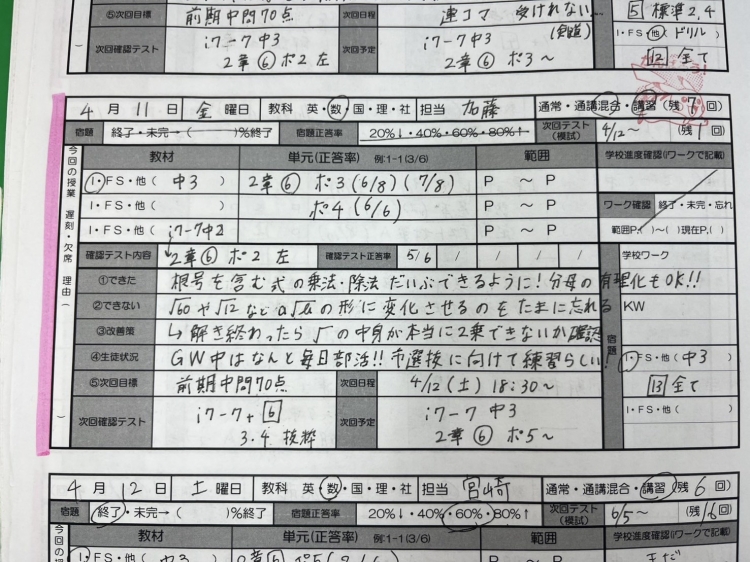 ⑤次回目標 前期中間70点 次回日程 連コマ 受けれない… 5 標準2,4
(剣道) I・FS・他( ドリル
次回確認テスト i7-7中3 次回予定 i7-7 中3 12 全て
2章⑥ポ2左 2章⑥ポ3〜
4月11日 金曜日 教科 英・数・国・理・社 担当 加藤 通常・通講混合・講習(残7回)
宿題 終了・未完→( )%終了 宿題正答率 20%↓・40%・60%・80%↑ 次回テスト(模試) 4/12〜(残1回)
今回の授業 遅刻・欠席 理由( )
教材 単元(正答率) 例:1-1(3/6) 範囲 学校進度確認(iワークで記載)
I・FS・他( 中3 ) 2章⑥ ポ3(6/8)(7/8) P 〜 P
I・FS・他( ) ポ4(6/6) P 〜 P ワーク確認 終了・未完・忘れ
I・FS・他( i7-7中2 P 〜 P 範囲P.( )〜( )現在P.( )
確認テスト内容 2章⑥ポ2左 確認テスト正答率 5/6 / / / / 学校ワーク
①できた 根号を含む式の乗法・除法だいぶできるように!分母の有理化もOK!!
②できない √60や√12などa√bの形に変化させるのをたまに忘れる KW
③改善策 ↳解き終わったら√の中身が本当に2乗できないか確認 宿題
④生徒状況 GW中はなんと毎日部活!!市選抜に向けて練習らしい! I・FS・他( 中3 )
⑤次回目標 前期中間70点 次回日程 4/12(土)18:30〜 13 全て
次回確認テスト i7-7+6 次回予定 i7-7 中3 I・FS・他( )
3.4 抜粋 2章⑥ポ5〜
4月12日 土曜日 教科 英・数・国・理・社 担当 宮崎 通常・通講混合・講習(残6回)
宿題 終了・未完→( )%終了 宿題正答率 20%↓・40%・60%・80%↑ 次回テスト(模試) 6/5〜(残16回)
今回の授 教材 単元(正答率) 例:1-1(3/6) 範囲 学校進度確認(iワークで記載)